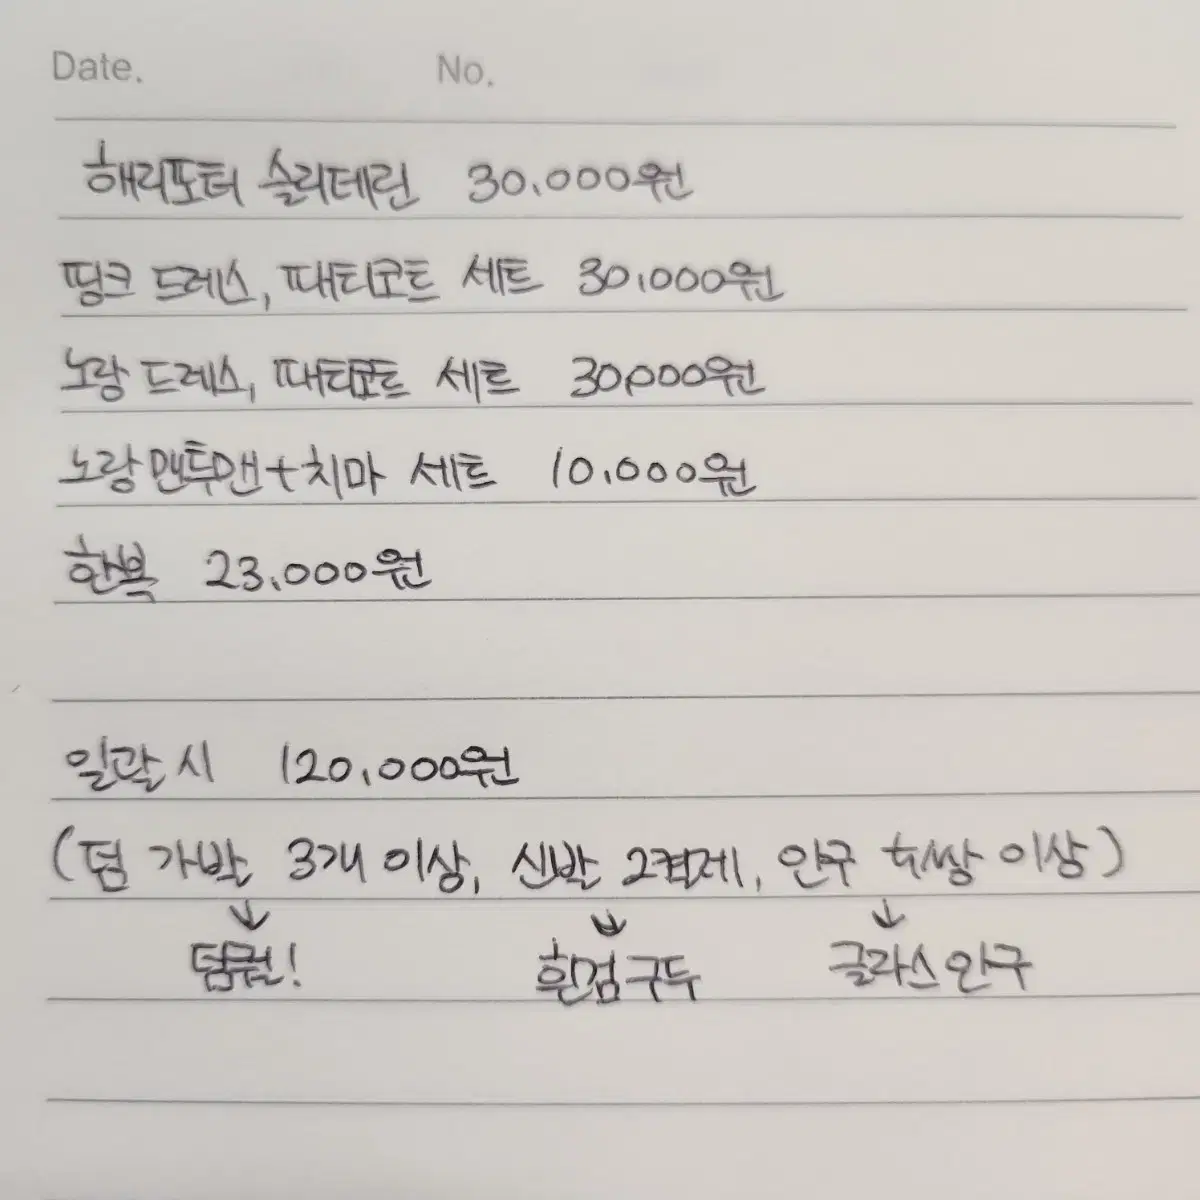 Date. No.
해리포터 슬리데린 30.000원
핑크 드레스, 패티코트 세트 30.000원
노랑 드레스, 패티코트 세트 30000원
노랑 맨투맨+치마 세트 10.000원
한복 23.000원
일괄 시 120.000원
(덤 가발 3개 이상, 신발 2켤레, 안구 4쌍 이상)
↓ ↓ ↓
덤퀄! 흰검구두 글라스안구